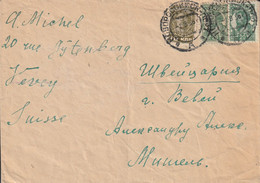 A. Michel
20 rue Gutenberg
Vevey
Suisse
Швейцария
г. Вевей
Александру Алекс.
Мишель.